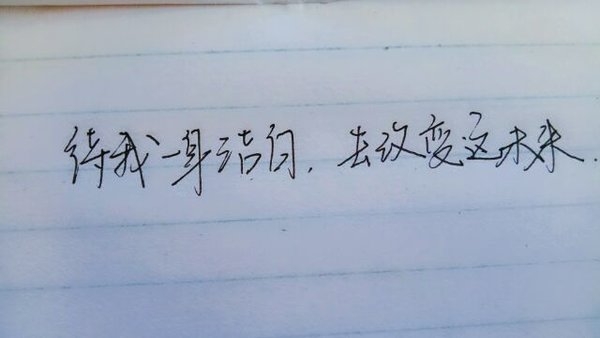 待我一身洁白，去改变这未来.